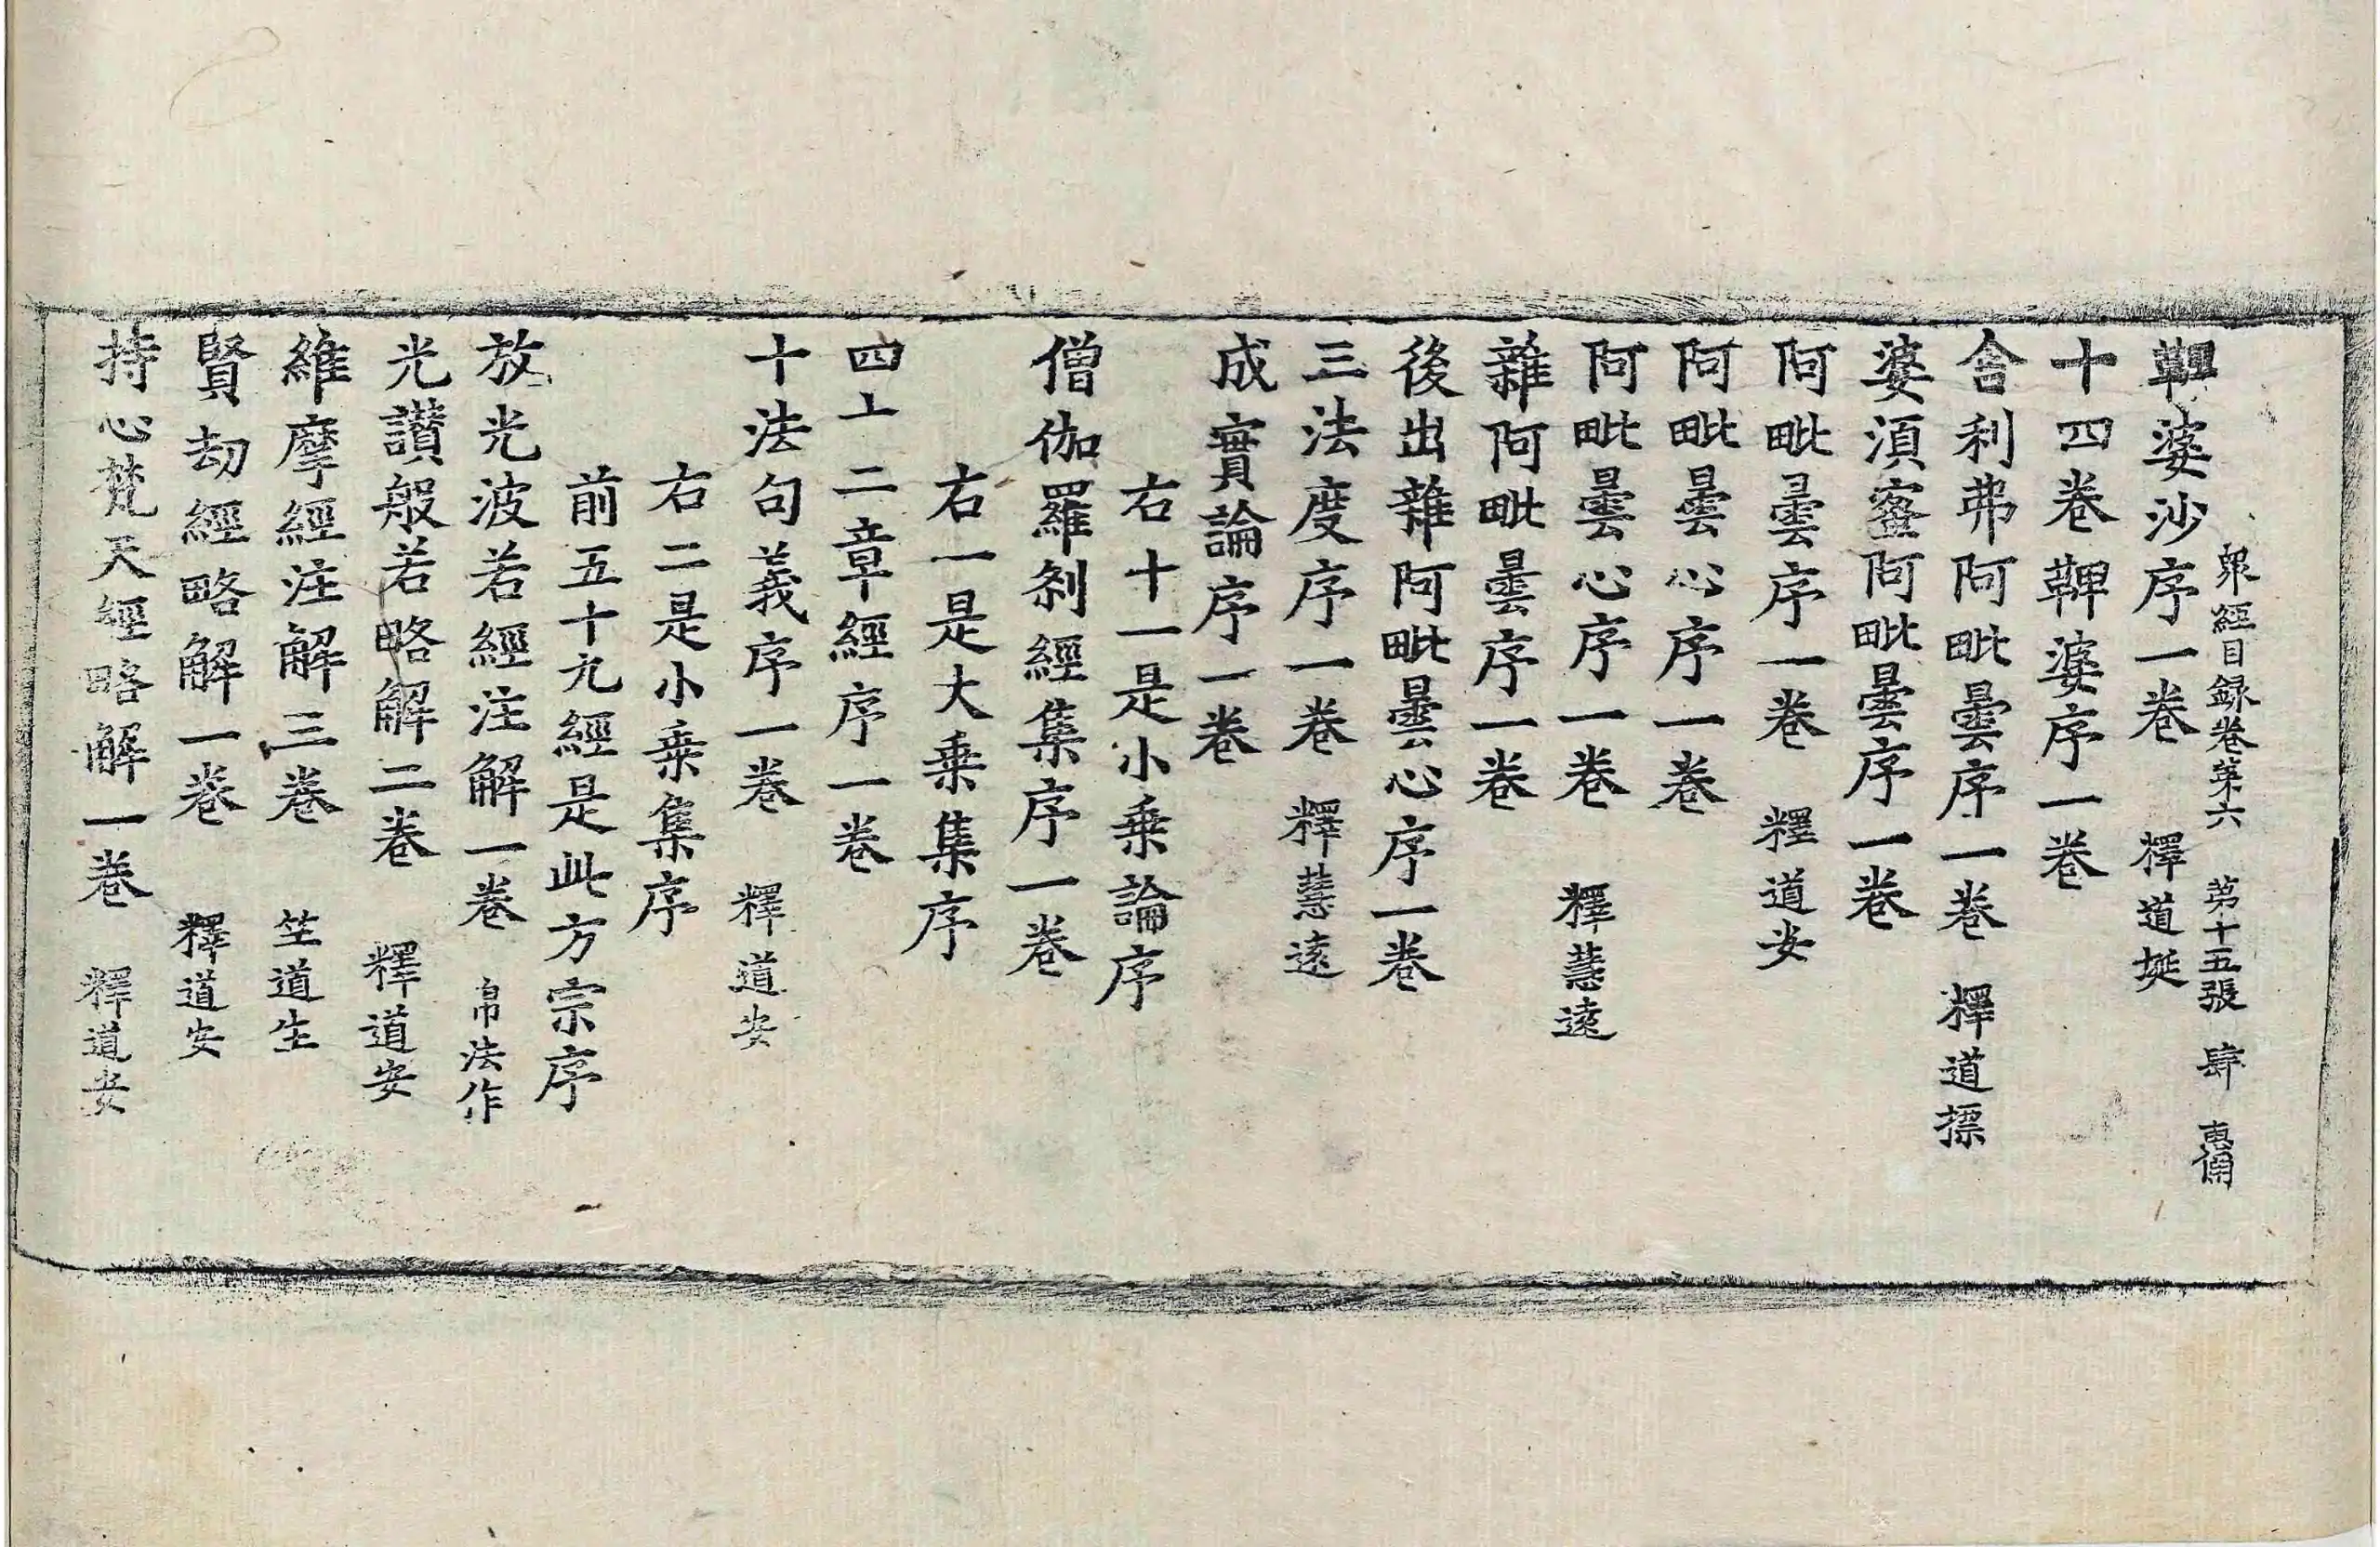 衆經目録卷第六　第十五張　肆
鞞婆沙序一卷　釋道埏
十四卷鞞婆序一卷
舎利弗阿毗曇序一卷　釋道摽
婆須蜜阿毗曇序一卷
阿毗曇序一卷　釋道安
阿毗曇心序一卷
阿毗曇心序一卷　釋慧遠
雜阿毗曇序一卷
後出雜阿毗曇心序一卷
三法度序一卷　釋慧遠
成實論序一卷
右十一是小乗論序
僧伽羅刹經集序一卷
右一是大乗集序
四十二章經序一卷
十法句義序一卷　釋道安
右二是小乗集序
前五十九經是此方宗序
放光波若經注解一卷　帛法作
光讃般若略解二卷　釋道安
維摩經注解三卷　竺道生
賢劫經略解一卷　釋道安
持心梵天經略解一卷　釋道安